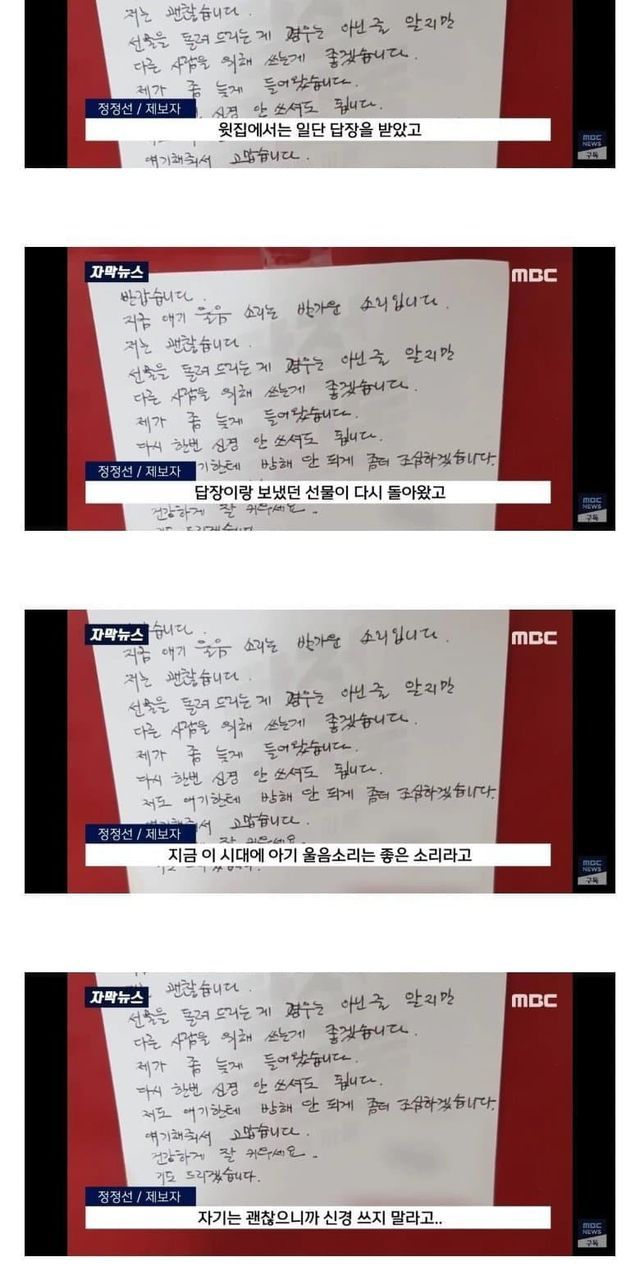 저는 괜찮습니다.
선물을 돌려 드리는 게 경우는 아닌 줄 알지만
다른 사람을 위해 쓰는게 좋겠습니다.
제가 좀 늦게 들어왔습니다.
신경 안 쓰셔도 됩니다.
정정선 / 제보자
윗집에서는 일단 답장을 받았고
얘기해줘서 고맙습니다.
MBC
NEWS
구독
자막뉴스
MBC
반갑습니다.
지금 애기 울음 소리는 반가운 소리입니다.
저는 괜찮습니다.
선물을 돌려 드리는 게 경우는 아닌 줄 알지만
다른 사람을 위해 쓰는게 좋겠습니다.
제가 좀 늦게 들어왔습니다.
다시 한번 신경 안 쓰셔도 됩니다.
애기한테 방해 안 되게 좀더 조심하겠습니다.
정정선 / 제보자
답장이랑 보냈던 선물이 다시 돌아왔고
건강하게 잘 키우세요.
기도 드리겠습니다.
MBC
NEWS
구독
자막뉴스
MBC
습니다.
지금 애기 울음 소리는 반가운 소리입니다.
저는 괜찮습니다.
선물을 돌려 드리는 게 경우는 아닌 줄 알지만
다른 사람을 위해 쓰는게 좋겠습니다.
제가 좀 늦게 들어왔습니다.
다시 한번 신경 안 쓰셔도 됩니다.
저도 애기한테 방해 안 되게 좀더 조심하겠습니다.
얘기해줘서 고맙습니다.
정정선 / 제보자
지금 이 시대에 아기 울음소리는 좋은 소리라고
MBC
NEWS
구독
자막뉴스
MBC
괜찮습니다.
선물을 돌려 드리는 게 경우는 아닌 줄 알지만
다른 사람을 위해 쓰는게 좋겠습니다.
제가 좀 늦게 들어왔습니다.
다시 한번 신경 안 쓰셔도 됩니다.
저도 애기한테 방해 안 되게 좀더 조심하겠습니다.
얘기해줘서 고맙습니다.
건강하게 잘 키우세요.
기도 드리겠습니다.
정정선 / 제보자
자기는 괜찮으니까 신경 쓰지 말라고..
MBC
NEWS
구독